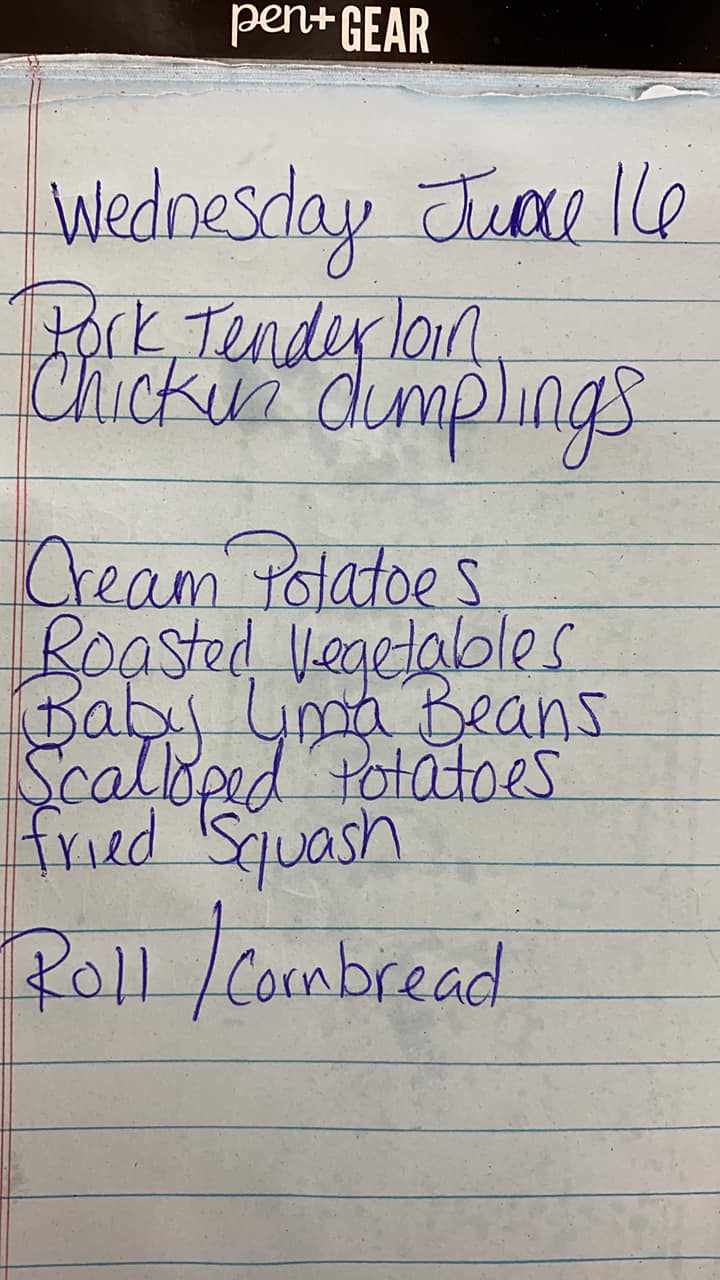 pen+GEAR
Wednesday June 16
Pork Tenderloin
Chicken dumplings
Cream Potatoes
Roasted Vegetables
Baby Lima Beans
Scalloped Potatoes
fried Squash
Roll / Cornbread